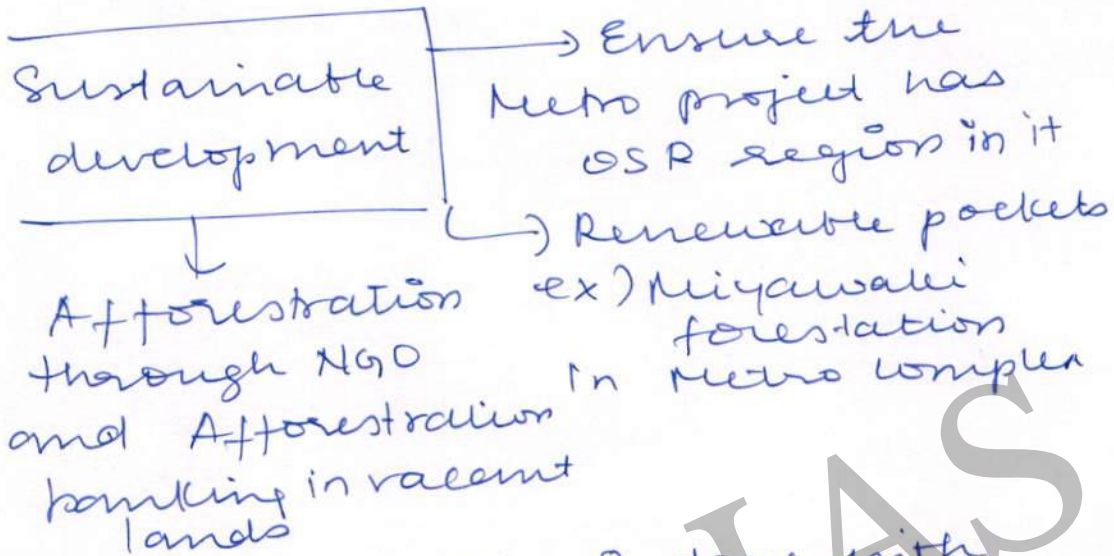 Sustainable
development
→ Ensure the
Metro project has
OSR region in it
→ Renewable pockets
ex) Miyawaki
forestation
in Metro complex
Afforestration
through NGO
and Afforestration
banking in vacant
lands
with
IAS